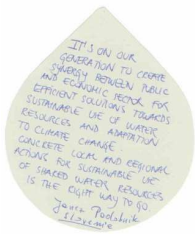 IT'S ON OUR
GENERATION TO CREATE
SYNERGY BETWEEN PUBLIC
AND ECONOMIC SECTOR FOR
EFFICIENT SOLUTIONS TOWARDS
SUSTAINABLE USE OF WATER
RESOURCES AND ADAPTATION
TO CLIMATE CHANGE.
CONCRETE LOCAL AND REGIONAL
ACTIONS FOR SUSTAINABLE USE
OF SHARED WATER RESOURCES
IS THE RIGHT WAY TO GO
Slovenia